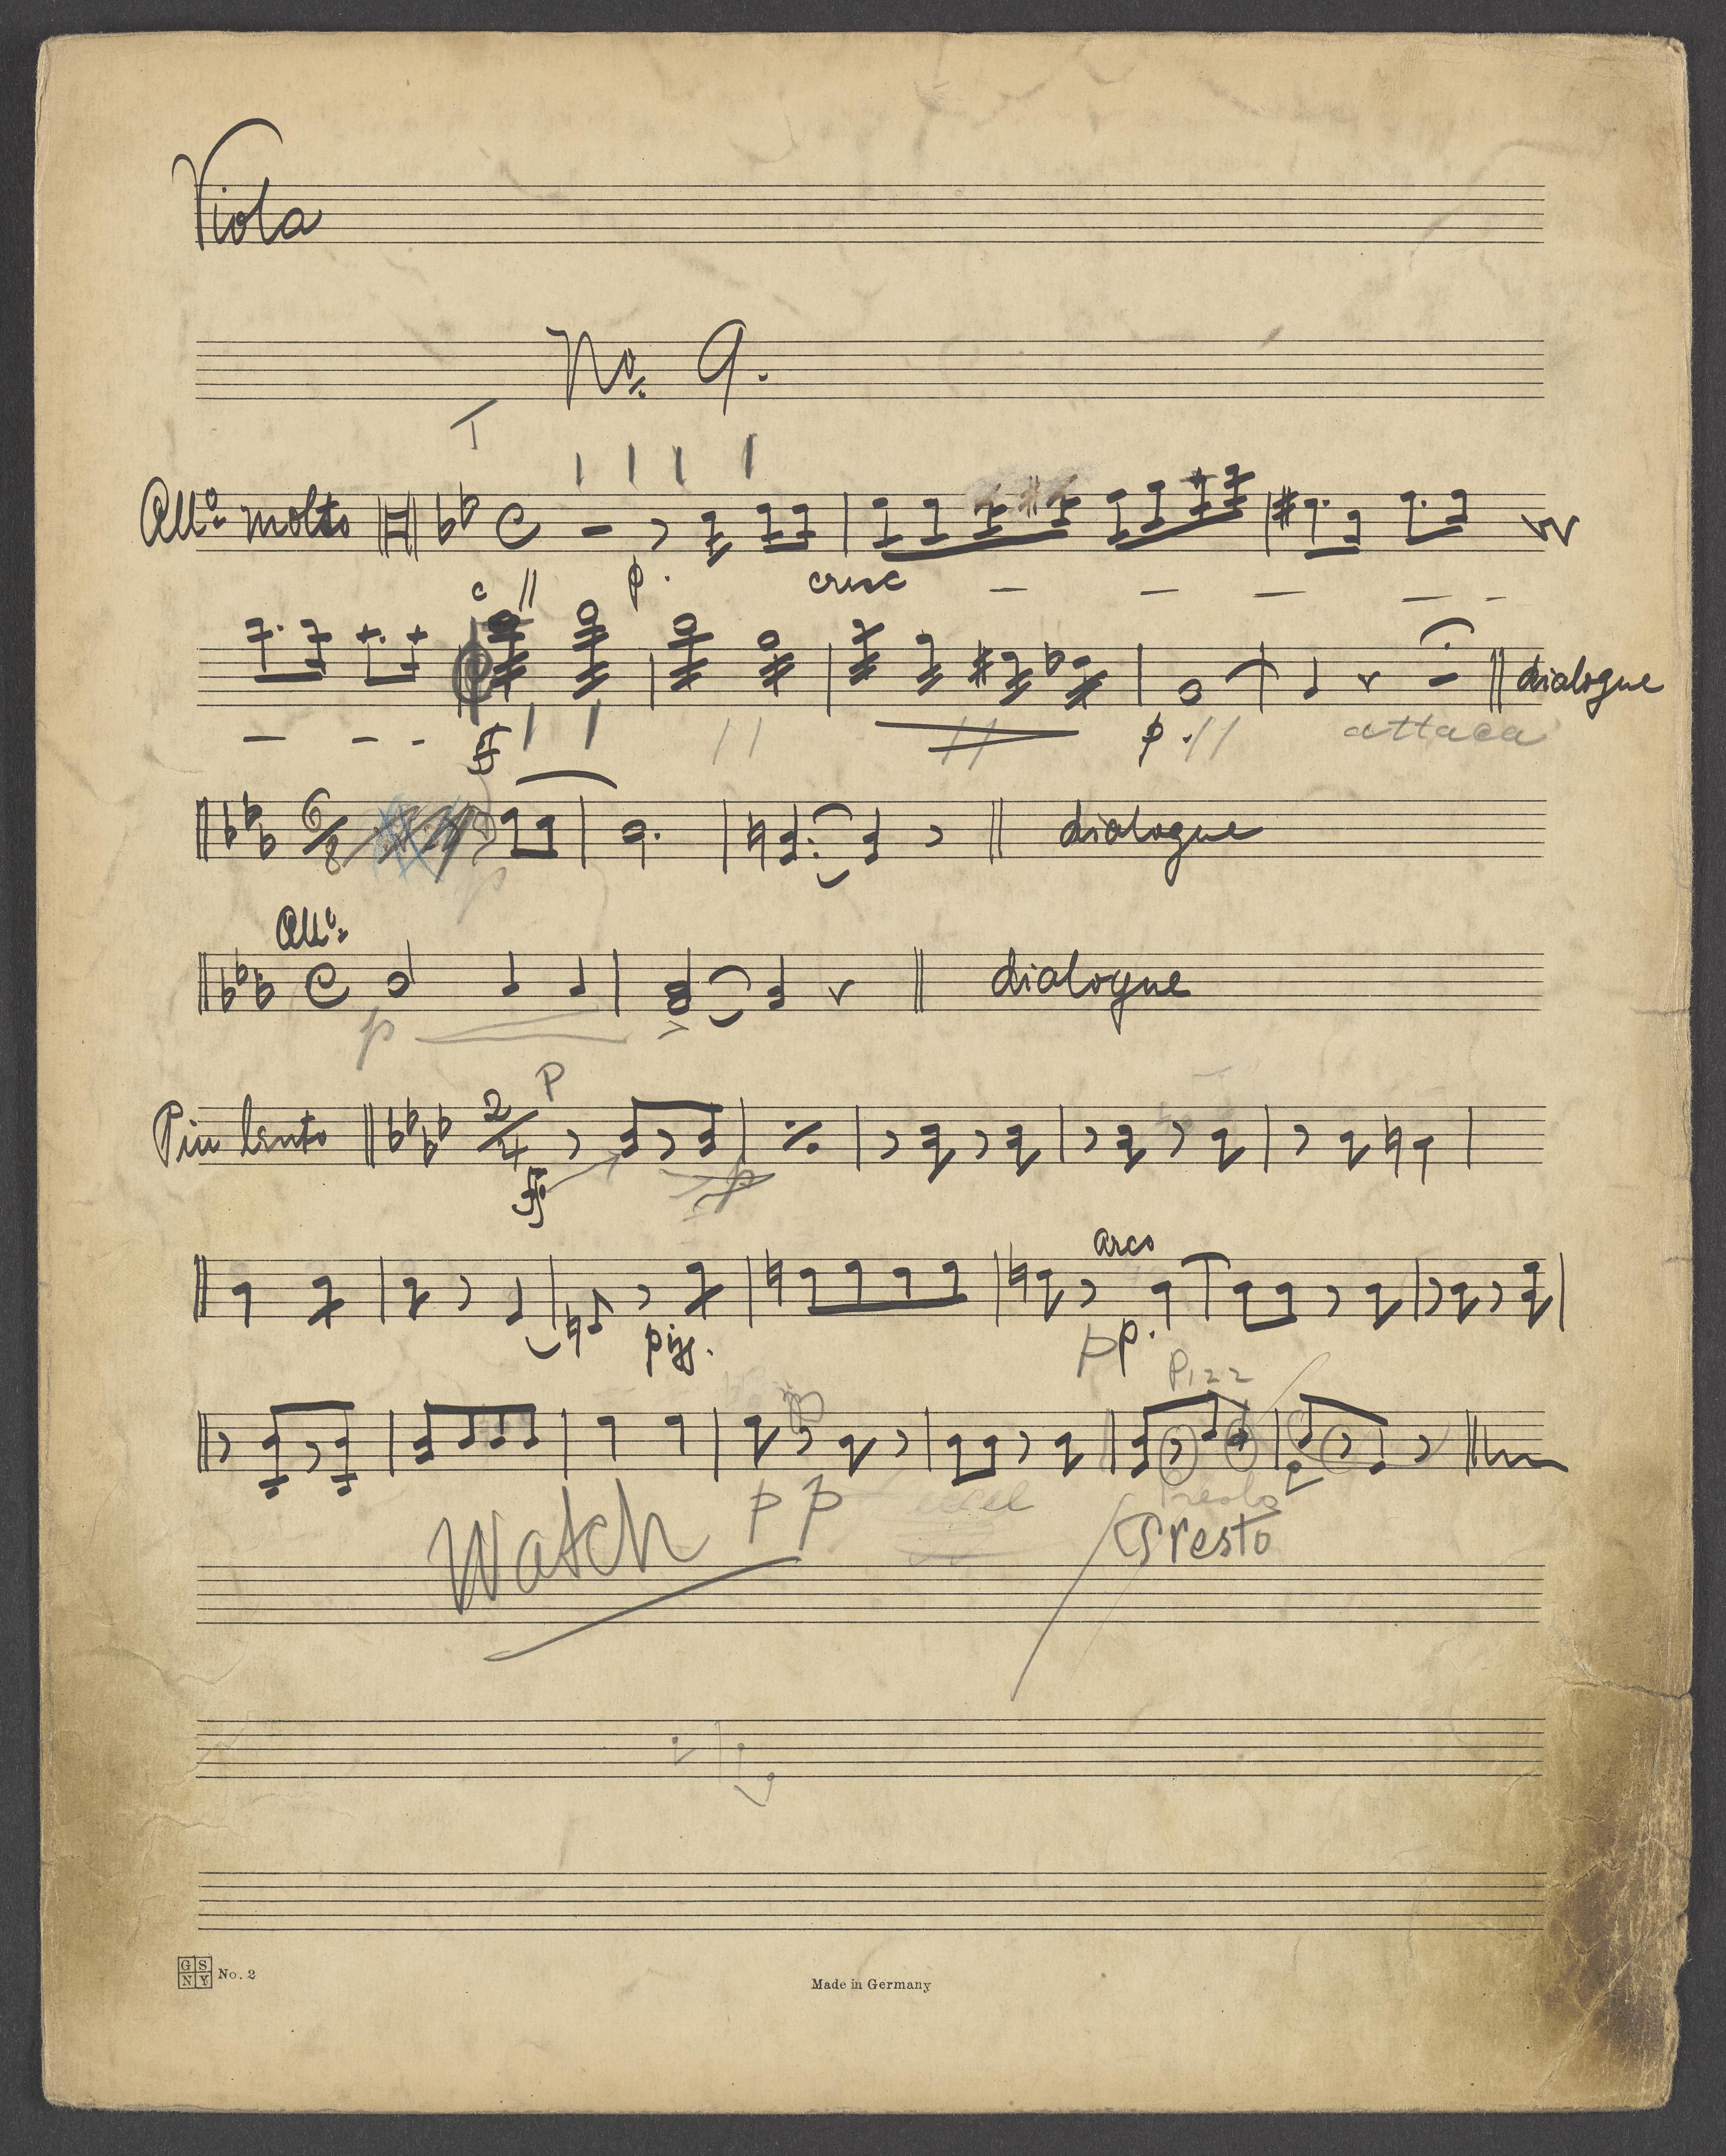 Viola
No. 9.
T
All.o molto C p. cresc
c
ff p. dialogue
attaca
6/8 dialogue
p
All.o
C dialogue
p
P
Piu lento 2/4
ff p
arco
pizz. pp.
Pizz
Watch pp Presto
Presto
GS NY No. 2
Made in Germany